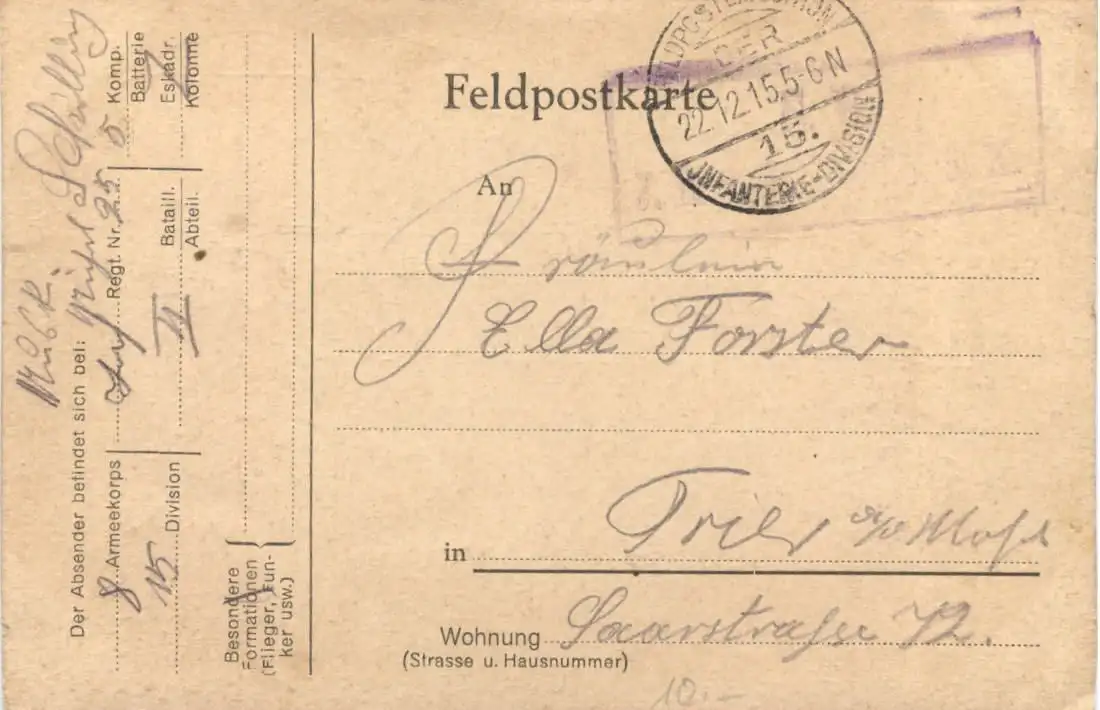 Feldpostkarte
FELDPOSTEXPEDITION
DER
22.12.15.5-6N
15.
INFANTERIE-DIVISION
An
Fräulein
Ella Forster
in Trier a/d Mosel
Wohnung Saarstraße 72.
(Strasse u. Hausnummer)
10.-
Schilling
Der Absender befindet sich bei:
8 Armeekorps Regt. Nr. 25 5 Komp.
Batterie
15 Division II Bataill. Eskadr.
Abteil. Kolonne
Besondere
Formationen
(Flieger, Fun-
ker usw.)